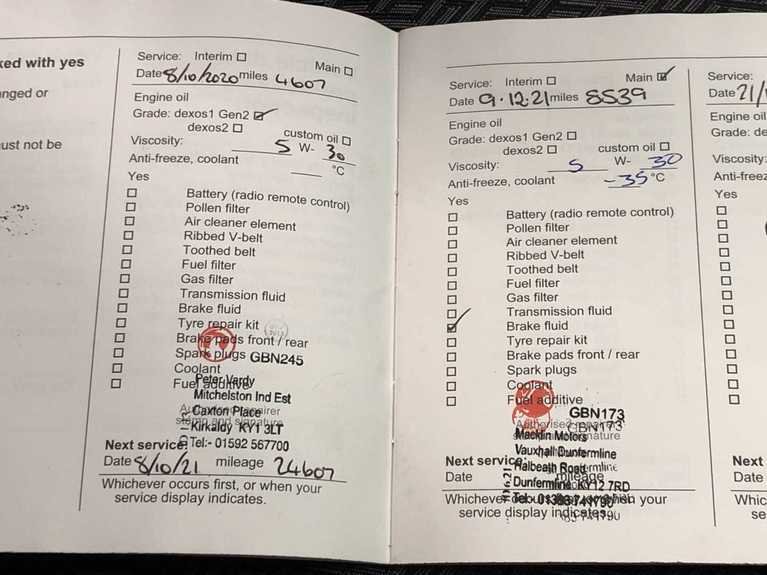 ked with yes
nged or
ust not be
Service: Interim
Main
Date 8/10/2020 miles 4607
Engine oil
Grade: dexos1 Gen2
dexos2
custom oil
Viscosity: 5 W- 30
Anti-freeze, coolant °C
Yes
Battery (radio remote control)
Pollen filter
Air cleaner element
Ribbed V-belt
Toothed belt
Fuel filter
Gas filter
Transmission fluid
Brake fluid
Tyre repair kit
Brake pads front / rear
Spark plugs GBN245
Coolant
Fuel additive
Peter Vardy
Mitchelston Ind Est
Caxton Place
Kirkaldy KY1 3LT
stamp and signature
Tel:- 01592 567700
Next service:
Date 8/10/21 mileage 24607
Whichever occurs first, or when your
service display indicates.
Service: Interim
Main
Date 9.12.21 miles 8539
Engine oil
Grade: dexos1 Gen2
dexos2
custom oil
Viscosity: 5 W- 30
Anti-freeze, coolant -35 °C
Yes
Battery (radio remote control)
Pollen filter
Air cleaner element
Ribbed V-belt
Toothed belt
Fuel filter
Gas filter
Transmission fluid
Brake fluid
Tyre repair kit
Brake pads front / rear
Spark plugs
Coolant
Fuel additive
GBN173
GBN173
Authorised repairer
Macklin Motors
Vauxhall Dunfermline
Halbeath Road
Dunfermline KY12 7RD
Next service:
Date mileage
Whichever your
service display indicates.
Service:
Date 21/
Engine oil
Grade: de
Viscosity:
Anti-freez
Yes
Next
Date
Whic
se